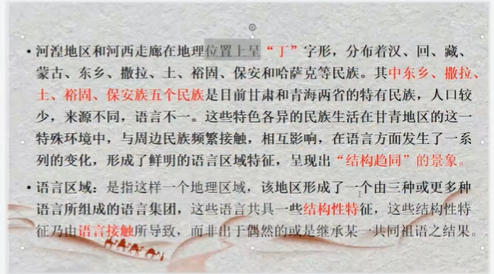 • 河湟地区和河西走廊在地理位置上呈“丁”字形，分布着汉、回、藏、
蒙古、东乡、撒拉、土、裕固、保安和哈萨克等民族。其中东乡、撒拉、
土、裕固、保安族五个民族是目前甘肃和青海两省的特有民族，人口较
少，来源不同，语言不一。这些特色各异的民族生活在甘青地区的这一
特殊环境中，与周边民族频繁接触，相互影响，在语言方面发生了一系
列的变化，形成了鲜明的语言区域特征，呈现出“结构趋同”的景象。
• 语言区域：是指这样一个地理区域，该地区形成了一个由三种或更多种
语言所组成的语言集团，这些语言共具一些结构性特征，这些结构性特
征乃由语言接触所导致，而非出于偶然的或是继承某一共同祖语之结果。